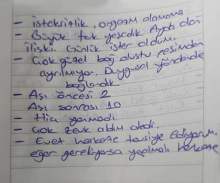 - isteksizlik, orgazm olamama
- Büyük tek yeşdik. Ayda bir
ilişki. Günlük ister oldum.
- Çok güzel bağ oluştu peşimden
ayrılmıyor. Duygusal yönünde
bağlandık
- Aşı öncesi 2
- Aşı sonrası 10
- Hiç yanmadı.
- Çok zevk aldım dedi.
- Evet herkese tavsiye ediyorum
eğer gerekiyorsa yapılmalı herkese